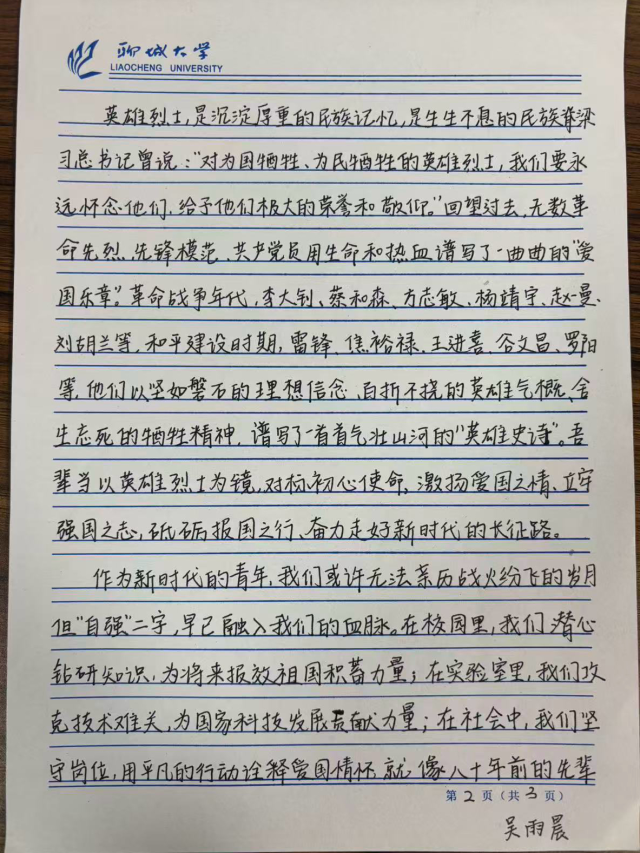 聊城大学
LIAOCHENG UNIVERSITY
英雄烈士,是沉淀厚重的民族记忆,是生生不息的民族脊梁
习总书记曾说:“对为国牺牲、为民牺牲的英雄烈士,我们要永
远怀念他们,给予他们极大的荣誉和敬仰。”回望过去,无数革
命先烈、先锋模范、共产党员用生命和热血谱写了一曲曲的“爱
国乐章”。革命战争年代,李大钊、蔡和森、方志敏、杨靖宇、赵一曼、
刘胡兰等,和平建设时期,雷锋、焦裕禄、王进喜、谷文昌、罗阳
等,他们以坚如磐石的理想信念、百折不挠的英雄气概、舍
生忘死的牺牲精神,谱写了一首首气壮山河的“英雄史诗”。吾
辈当以英雄烈士为镜,对标初心使命,激扬爱国之情、立牢
强国之志,砥砺报国之行、奋力走好新时代的长征路。
作为新时代的青年,我们或许无法亲历战火纷飞的岁月
但“自强”二字,早已融入我们的血脉。在校园里,我们潜心
钻研知识,为将来报效祖国积蓄力量;在实验室里,我们攻
克技术难关,为国家科技发展贡献力量;在社会中,我们坚
守岗位,用平凡的行动诠释爱国情怀,就像八十年前的先辈
第2页(共3页)
吴雨晨